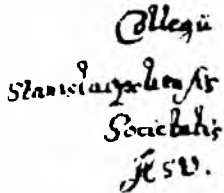 Collegii
Stanislaopoliensis
Societatis
JESV.